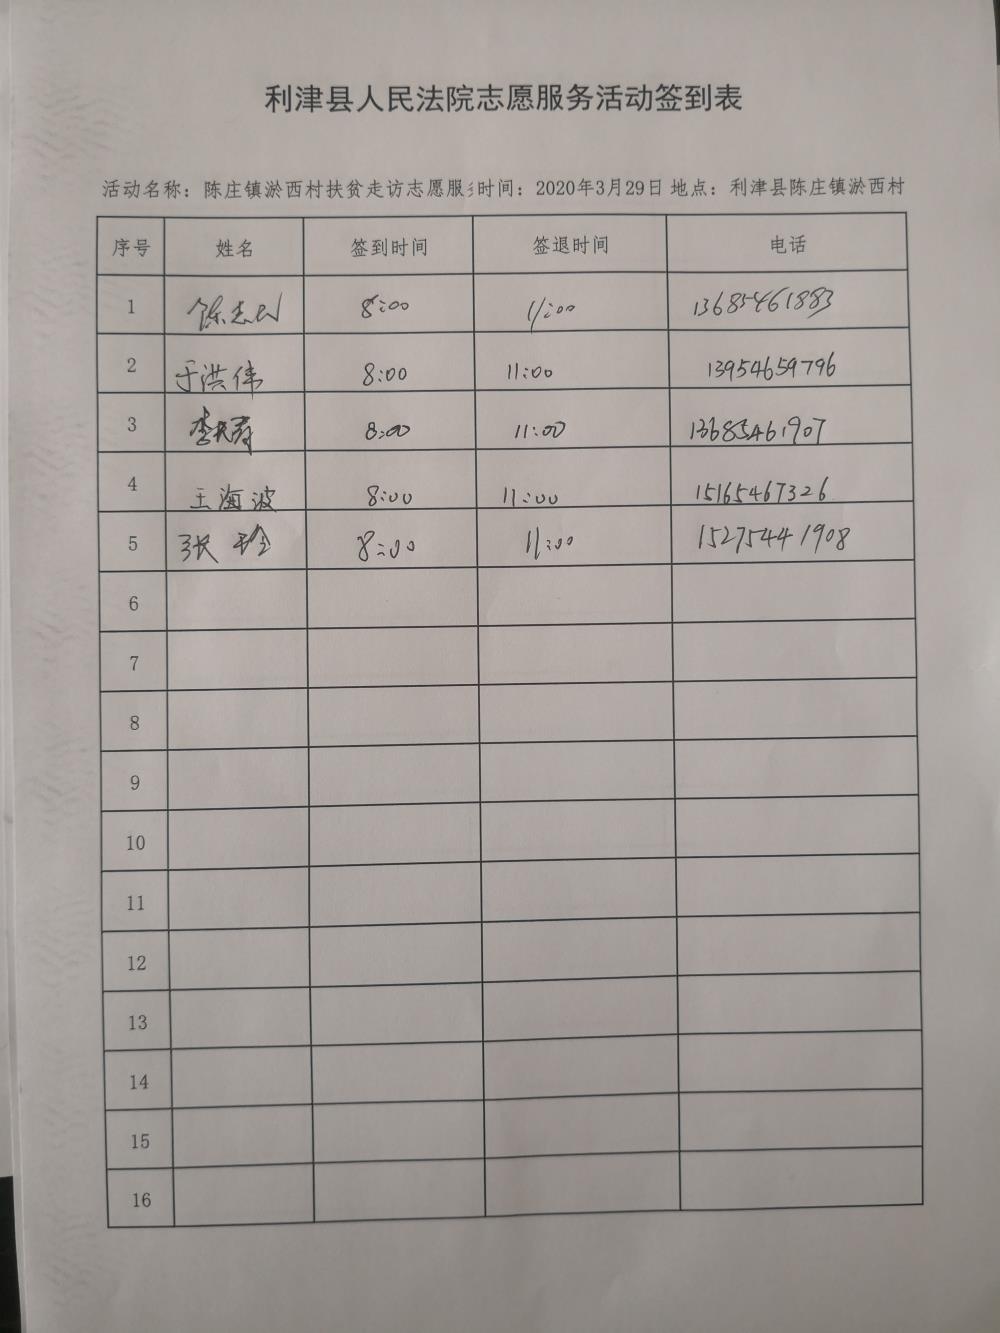 利津县人民法院志愿服务活动签到表
活动名称：陈庄镇淤西村扶贫走访志愿服 时间：2020年3月29日 地点：利津县陈庄镇淤西村
序号 姓名 签到时间 签退时间 电话
1 志 8:00 11:00 13685461883
2 于洪伟 8:00 11:00 13954659796
3 李 8:00 11:00 13685461907
4 王海波 8:00 11:00 15165467326
5 张玲 8:00 11:00 15275441908
6
7
8
9
10
11
12
13
14
15
16